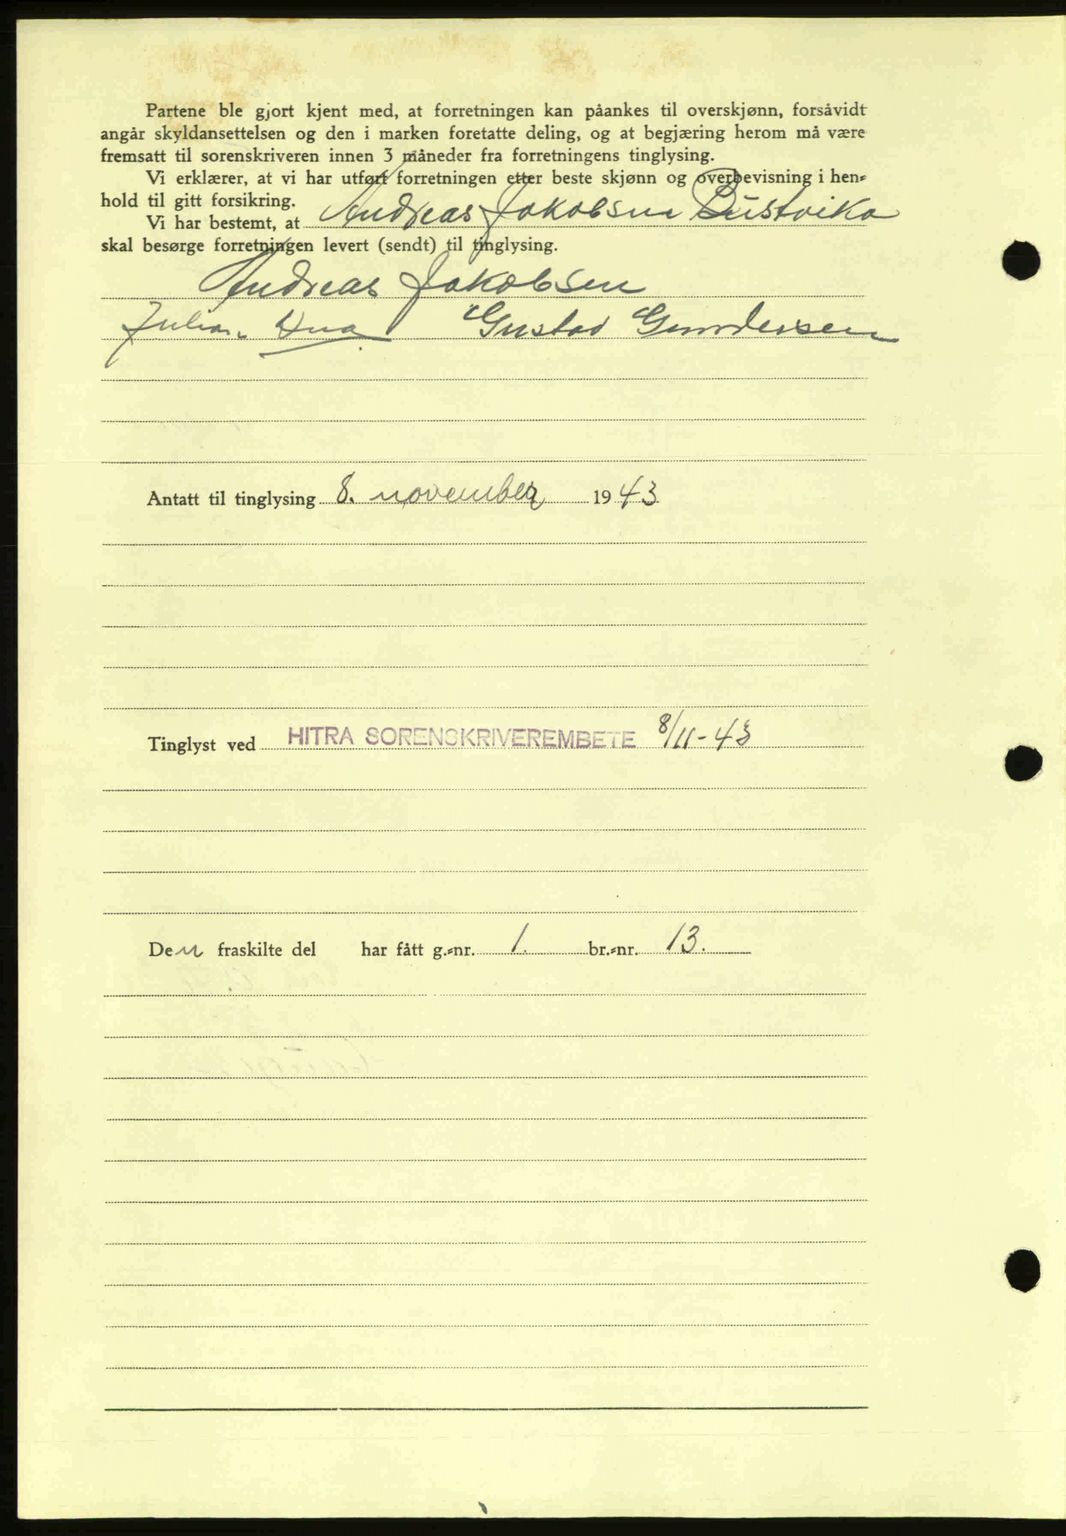 Partene ble gjort kjent med, at forretningen kan påankes til overskjønn, forsåvidt
angår skyldansettelsen og den i marken foretatte deling, og at begjæring herom må være
fremsatt til sorenskriveren innen 3 måneder fra forretningens tinglysing.
Vi erklærer, at vi har utført forretningen etter beste skjønn og overbevisning i hen-
hold til gitt forsikring.
Vi har bestemt, at Andreas Jakobsen Bústvika
skal besørge forretningen levert (sendt) til tinglysing.
Andreas Jakobsen
Julian Gustav Gundersen
Antatt til tinglysing 8. november 1943
Tinglyst ved HITRA SORENSKRIVEREMBETE 8/11-43
Den fraskilte del har fått g.-nr. 1. br.-nr. 13.